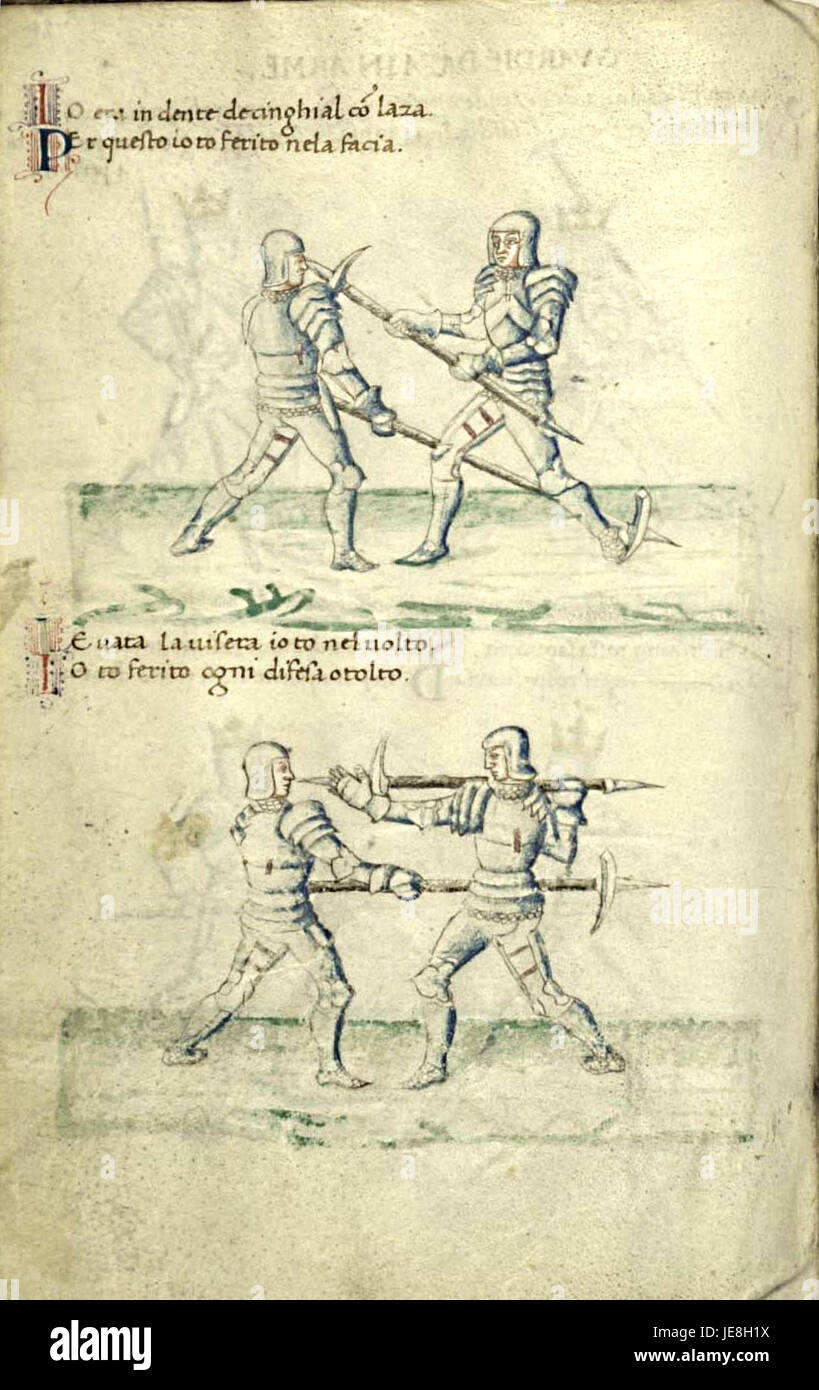 IO era in dente de cinghial cō laza.
PEr questo io to ferito ne la facia.
LEvata la visera io to nel volto.
IO to ferito ogni difesa o tolto.
alamy
Image ID: JE8H1X
www.alamy.com